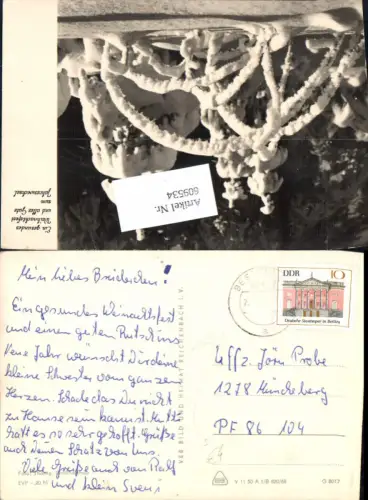 Ein gesundes
Weihnachtsfest
und alles Gute
zum
Jahreswechsel
Artikel Nr.
609534
Mein liebes Brüderchen!
Ein gesundes Weihnachtsfest
und einen guten Rutsch ins
neue Jahr wünscht Dir deine
kleine Schwester vom ganzen
Herzen. Schade das Du nicht
zu Hause sein kannst. Mutti
hatt es so sehr gehofft. Grüße
auch deinen Schatz von uns.
Viele Grüße auch von Ralf
und klein Sveni
VEB BILD UND HEIMAT REICHENBACH i. V.
DDR 10
Deutsche Staatsoper in Berlin
Uffz. Jörn Probe
1278 Müncheberg
PF 86 104
V 11 50 A 1/B